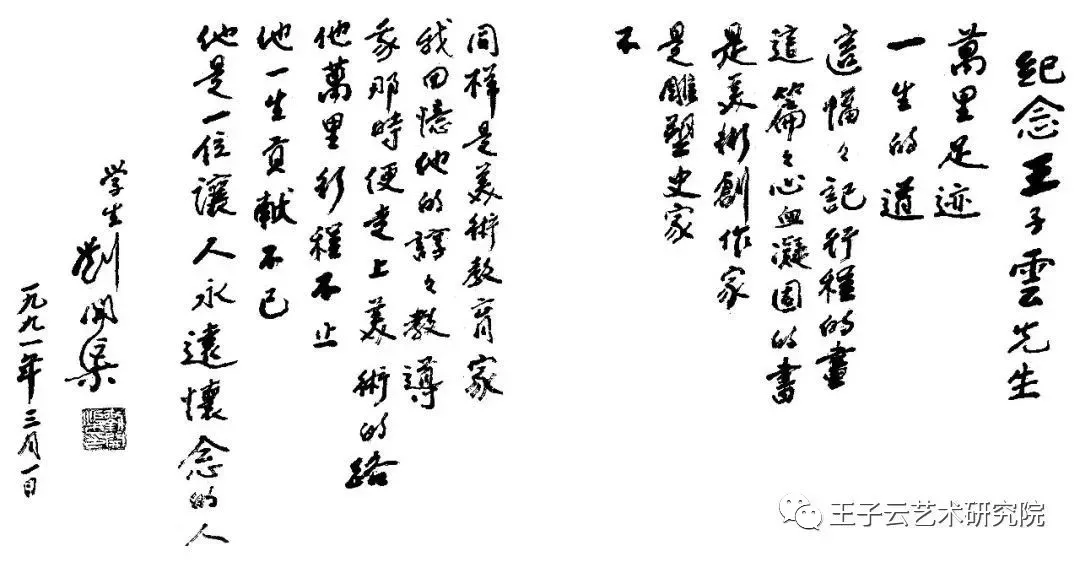 紀念王子雲先生
萬里足迹
一生的道
這幅々記行程的畫
這篇々心血凝固的書
是美術創作家
是雕塑史家
不
同样是美術教育家
我回憶他的諄々教導
我那時便走上美術的路
他萬里行程不止
他一生貢献不已
他是一位讓人永遠懷念的人
学生
劉開渠
一九九一年三月一日
王子云艺术研究院